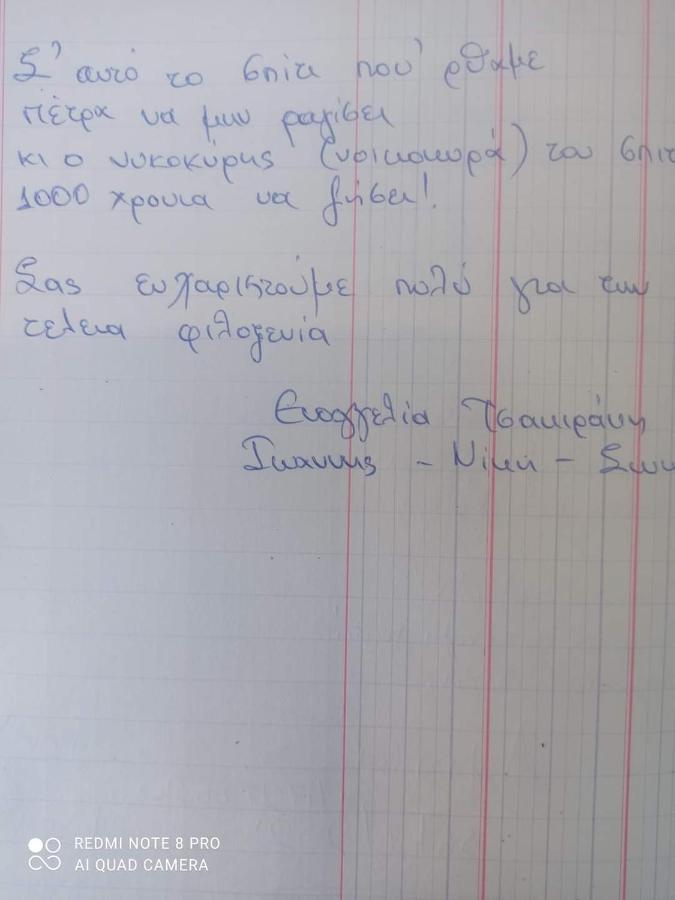 Σ' αυτό το σπίτι που' ρθαμε
πέτρα να μην ραγίσει
κι ο νυκοκύρης (νοικοκυρά) του σπιτ
1000 χρονια να ζήσει!
Σας ευχαριστούμε πολύ για την
τελεια φιλοξενία
Ευαγγελία Τσακιράκη
Ιωαννης - Νίκη -
REDMI NOTE 8 PRO
AI QUAD CAMERA